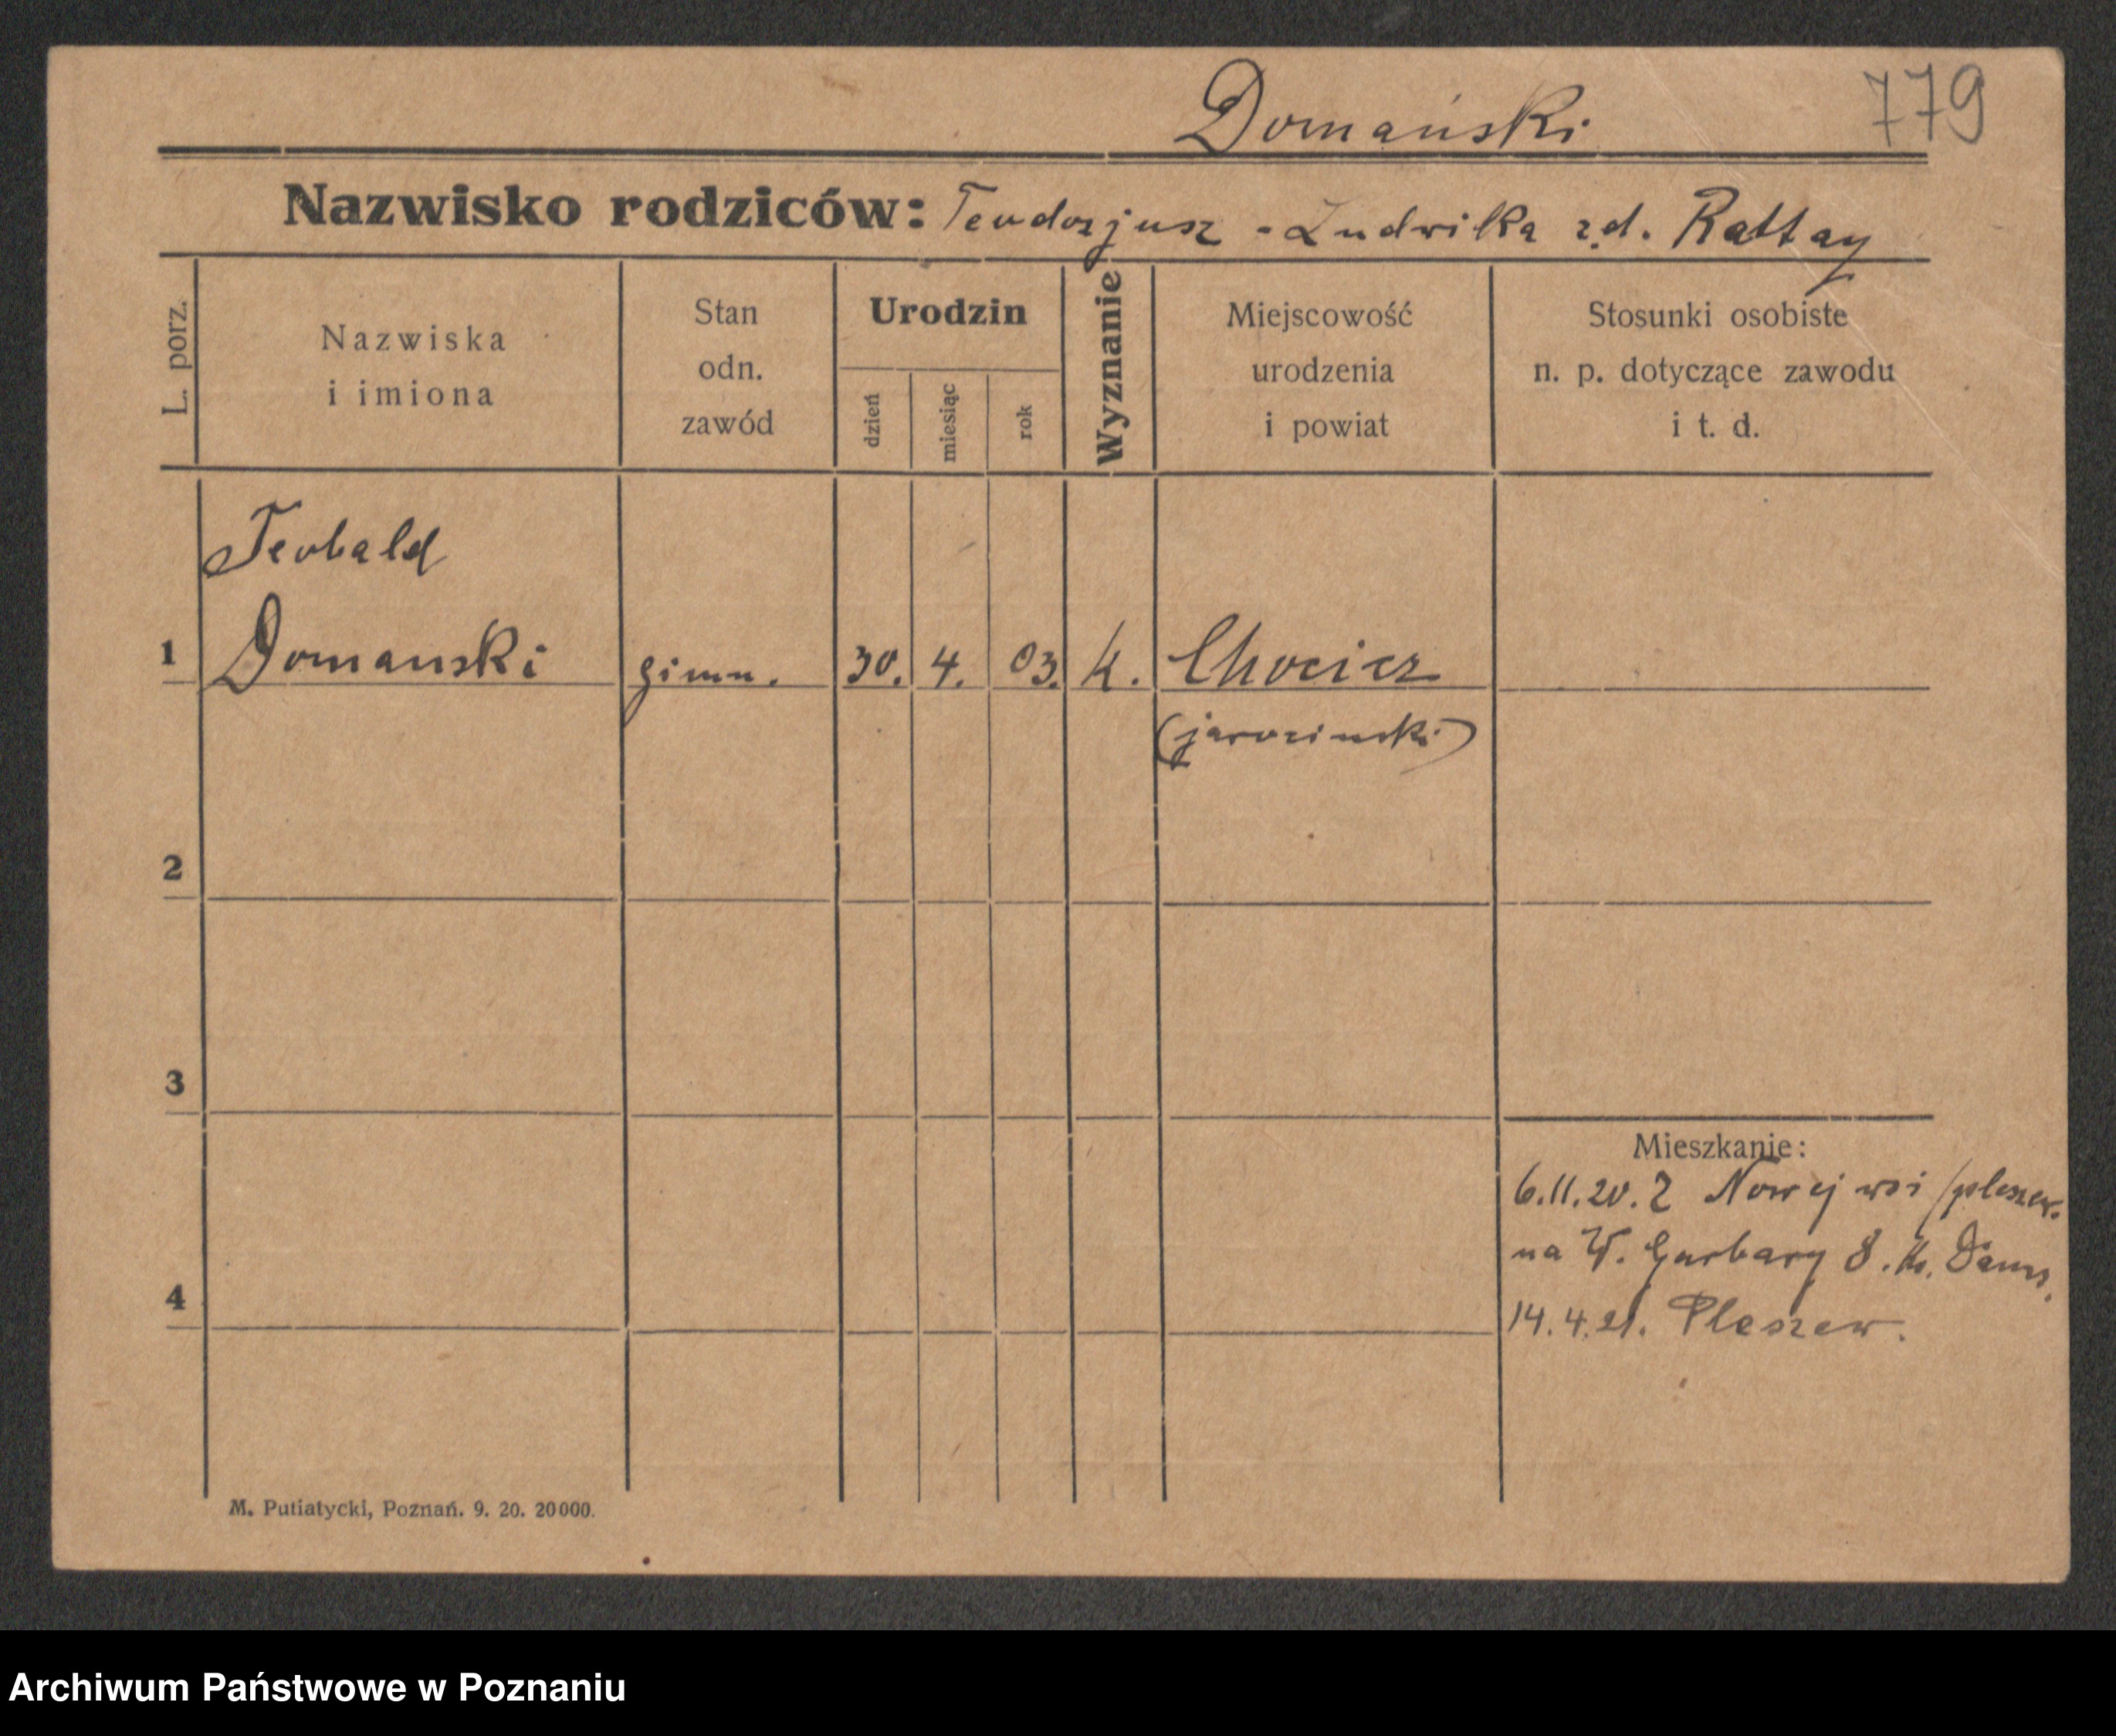 Domański 779
Nazwisko rodziców: Teodozjusz - Ludwika zd. Rattay
L. porz.
Nazwiska
i imiona
Stan
odn.
zawód
Urodzin
dzień
miesiąc
rok
Wyznanie
Miejscowość
urodzenia
i powiat
Stosunki osobiste
n. p. dotyczące zawodu
i t. d.
Teobald
1 Domanski gimn. 30. 4. 03. k. Chocicz
(jarocinski)
2
3
4
Mieszkanie:
6.11.20. Z Nowej wsi /pleszew.
na W. Garbary 8.
14.4.21. Pleszew.
M. Putiatycki, Poznań. 9. 20. 20000.
Archiwum Państwowe w Poznaniu